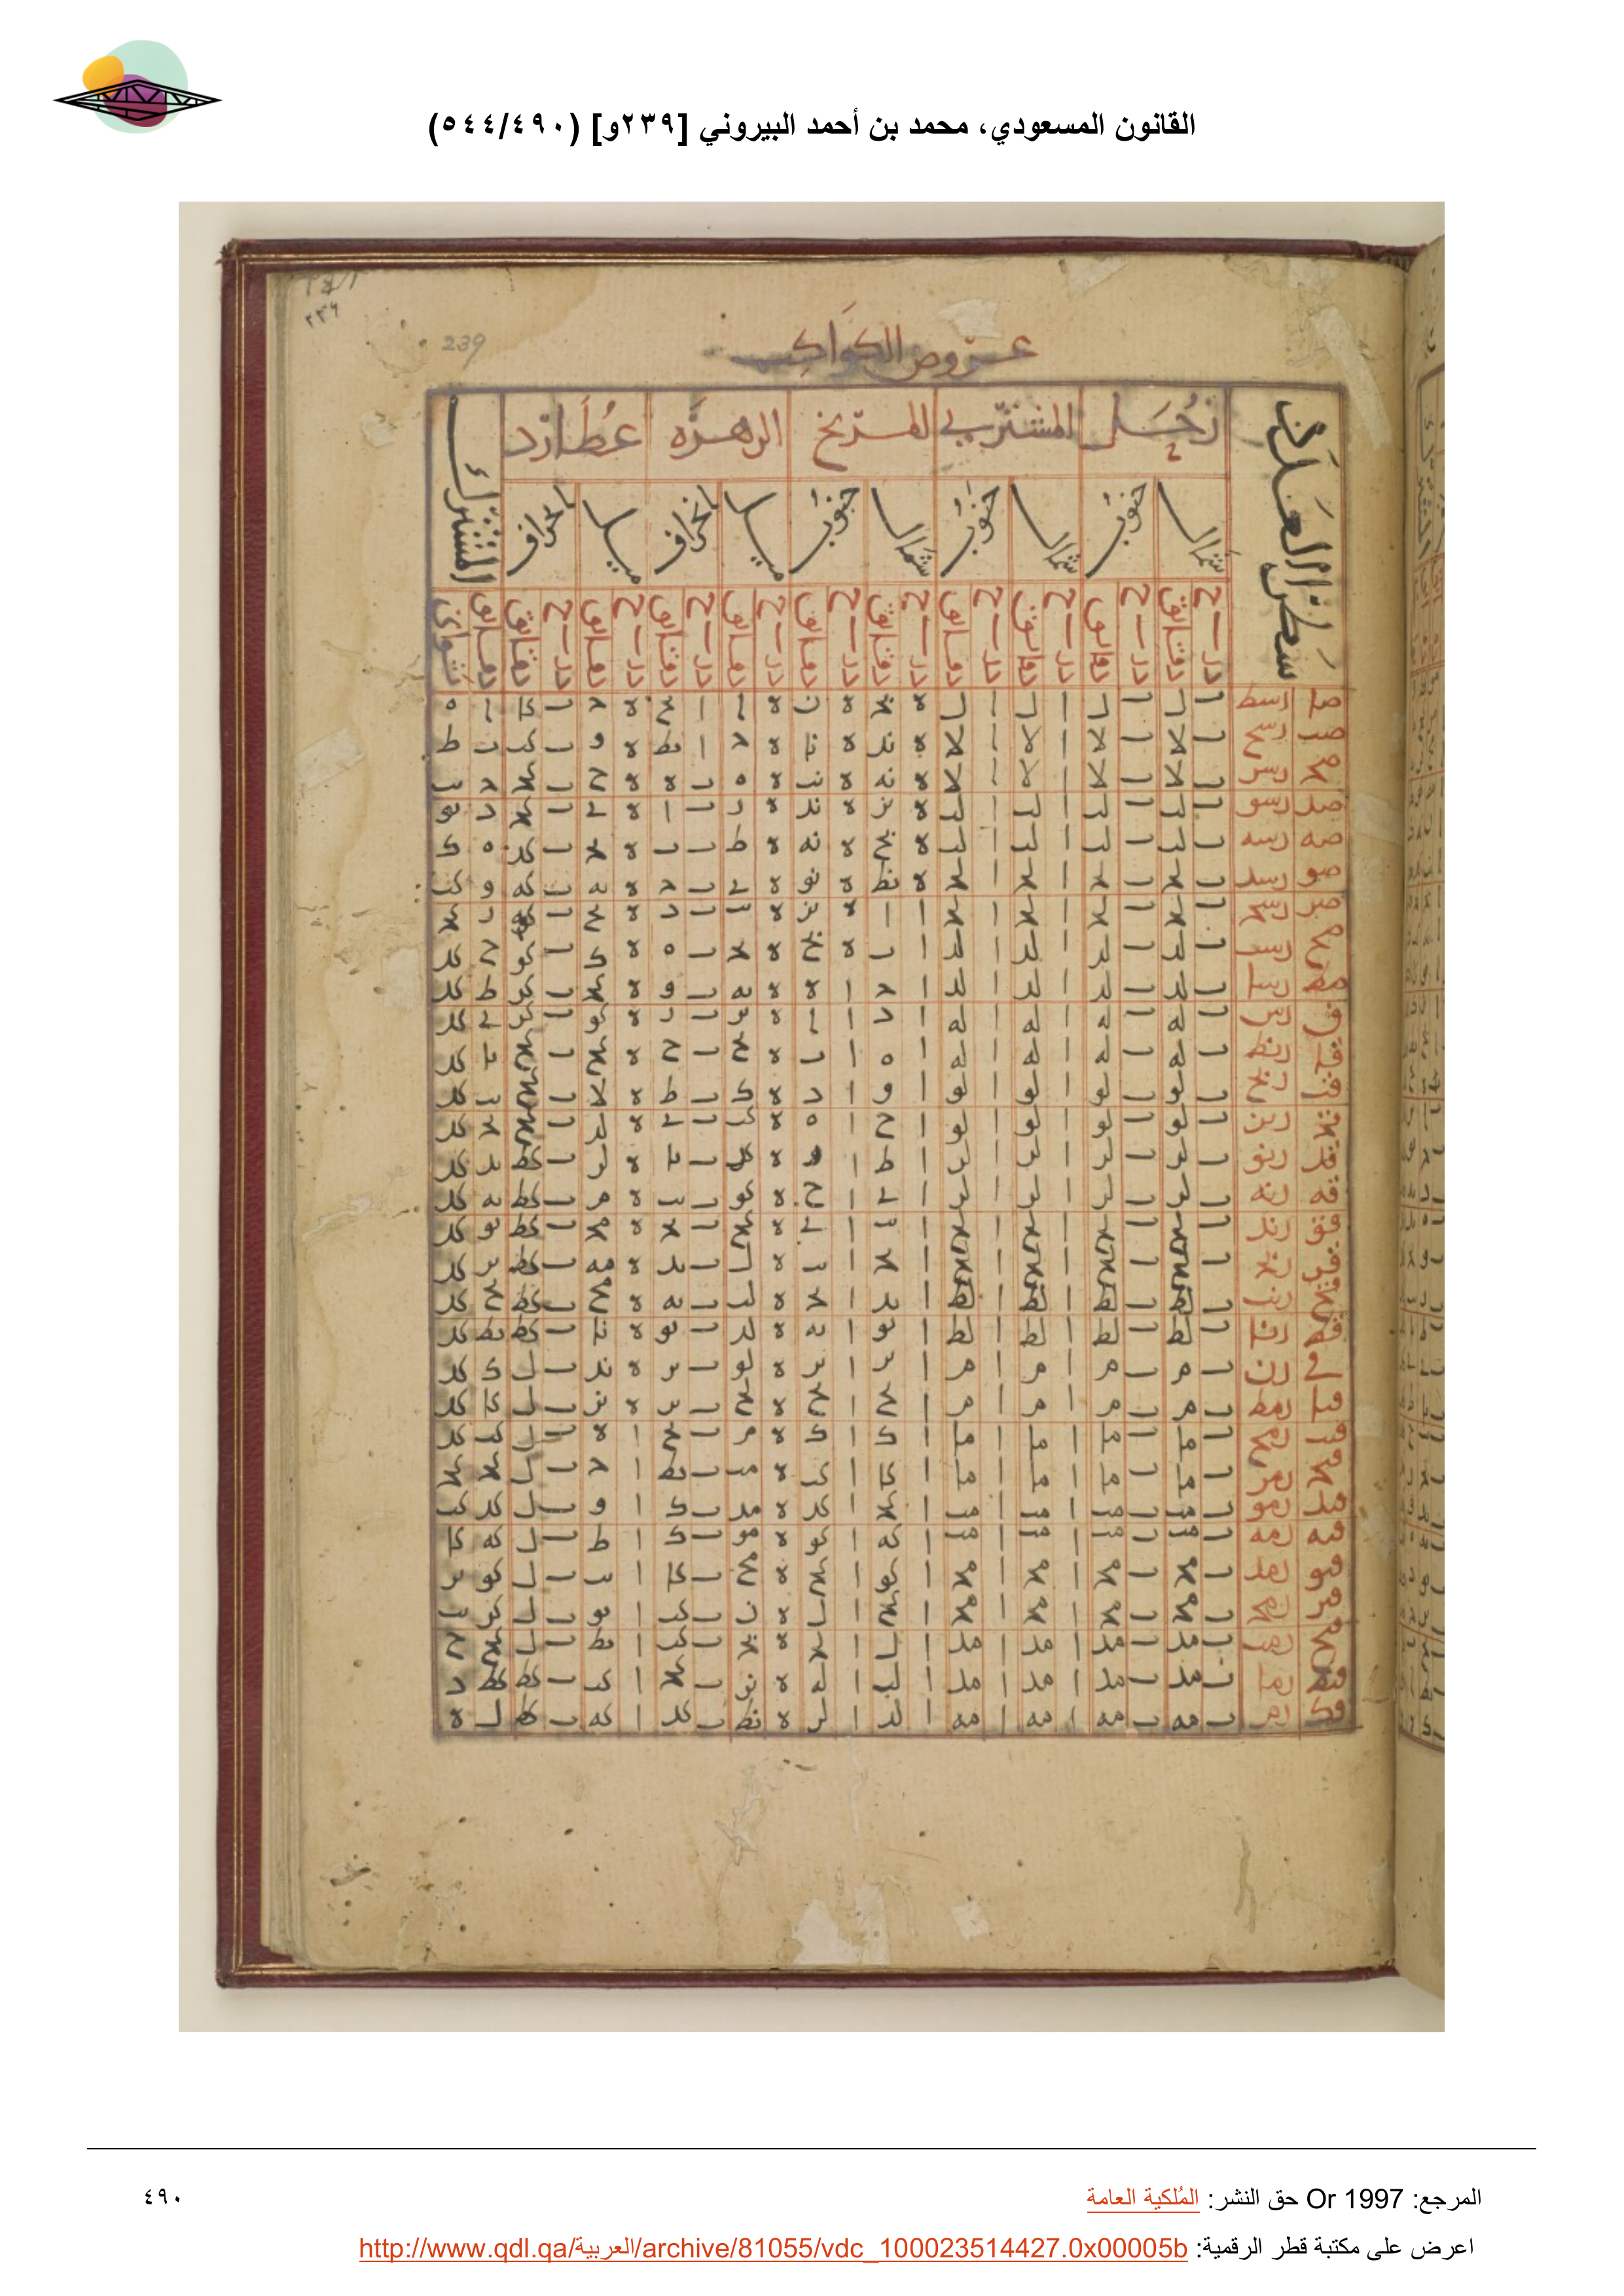 القانون المسعودي، محمد بن أحمد البيروني [٢٣٩و] (٥٤٤/٤٩٠)
٢٣٩
239
عروض الكواكب
سطرا العدد زحل المشتري المريخ الزهرة عطارد المشترك
شمال جنوب شمال جنوب شمال جنوب ميل انحراف ميل انحراف
درج دقائق درج دقائق درج دقائق درج دقائق درج دقائق درج دقائق درج دقائق درج دقائق درج دقائق درج دقائق دقائق ثواني
صا رسط ب ل ب ل ا ل ا ل ه نج ه ن ه ا ا نح ه ج ب كا ا ه
صب رسح ب لا ب لا ا لا ا لا ه ند ه نا ه ج ا نط ه و ب كب ب ط
صج رسز ب لا ب لا ا لا ا لا ه نه ه نب ه ه ب ه ه ح ب كج ج يب
صد رسو ب لب ب لب ا لب ا لب ه نز ه ند ه ز ب ا ه ي ب كج د يو
صه رسه ب لب ب لب ا لب ا لب ه نح ه نه ه ط ب ب ه يج ب كد ه ك
صو رسد ب لج ب لج ا لج ا لج ه نط ه نو ه ي ب ج ه يه ب كه و كب
صز رسج ب لج ب لج ا لج ا لج ا ا ه نز ه يب ب د ه يح ب كه ز كج
صح رسب ب لد ب لد ا لد ا لد ا ب ه نح ه يج ب ه ه ك ب كو ح كد
صط رسا ب لد ب لد ا لد ا لد ا ج ا ه ه يه ب و ه كج ب كز ط كد
ق رس ب له ب له ا له ا له ا د ا ا ه يز ب ز ه كو ب كز ي كد
قا رنط ب له ب له ا له ا له ا ه ا ب ه يح ب ح ه كح ب كح يا كد
قب رنح ب لو ب لو ا لو ا لو ا و ا د ه ك ب ط ه لا ب كح يب كد
قج رنز ب لو ب لو ا لو ا لو ا ح ا ه ه كب ب ي ه لد ب كح يج كد
قد رنو ب لز ب لز ا لز ا لز ا ط ا و ه كد ب يا ه لز ب كط يد كد
قه رنه ب لز ب لز ا لز ا لز ا ي ا ح ه كو ب يب ه م ب كط يه كد
قو رند ب لح ب لح ا لح ا لح ا يب ا ي ه كح ب يج ه مج ب كط يو كد
قز رنج ب لح ب لح ا لح ا لح ا يج ا يب ه ل ب يد ه مه ب كط يز كد
قح رنب ب لط ب لط ا لط ا لط ا يد ا يج ه لب ب يه ه مح ب كط يح كد
قط رنا ب لط ب لط ا لط ا لط ا يو ا يه ه لد ب يو ه نا ب كط يط كد
قي رن ب م ب م ا م ا م ا يز ا يز ه لو ب يز ه ند ب ل ك كد
قيا رمط ب م ب م ا م ا م ا يح ا يح ه لح ب يز ه نز ب ل كا كد
قيب رمح ب ما ب ما ا ما ا ما ا ك ا ك ه م ب يح ا ه ب ل كب كد
قيج رمز ب ما ب ما ا ما ا ما ا كا ا كب ه مب ب يط ا ج ب ل كج كج
قيد رمو ب مب ب مب ا مب ا مب ا كج ا كد ه مد ب ك ا و ب ل كد كب
قيه رمه ب مب ب مب ا مب ا مب ا كه ا كو ه مو ب ك ا ط ب ل كه كا
قيو رمد ب مج ب مج ا مج ا مج ا كو ا كح ه مح ب كا ا يب ب ل كو يز
قيز رمج ب مج ب مج ا مج ا مج ا كح ا ل ه ن ب كب ا يو ب ل كز يب
قيح رمب ب مد ب مد ا مد ا مد ا ل ا لج ه نج ب كب ا يط ب ل كح ح
قيط رما ب مد ب مد ا مد ا مد ا لب ا له ه نز ب كج ا كب ب كط كط د
قك رم ب مه ب مه ا مه ا مه ا لد ا لز ه نط ب كد ا كه ب كط ل ه
المرجع: Or 1997 حق النشر: المُلكية العامة
٤٩٠
اعرض على مكتبة قطر الرقمية: http://www.qdl.qa/العربية/archive/81055/vdc_100023514427.0x00005b